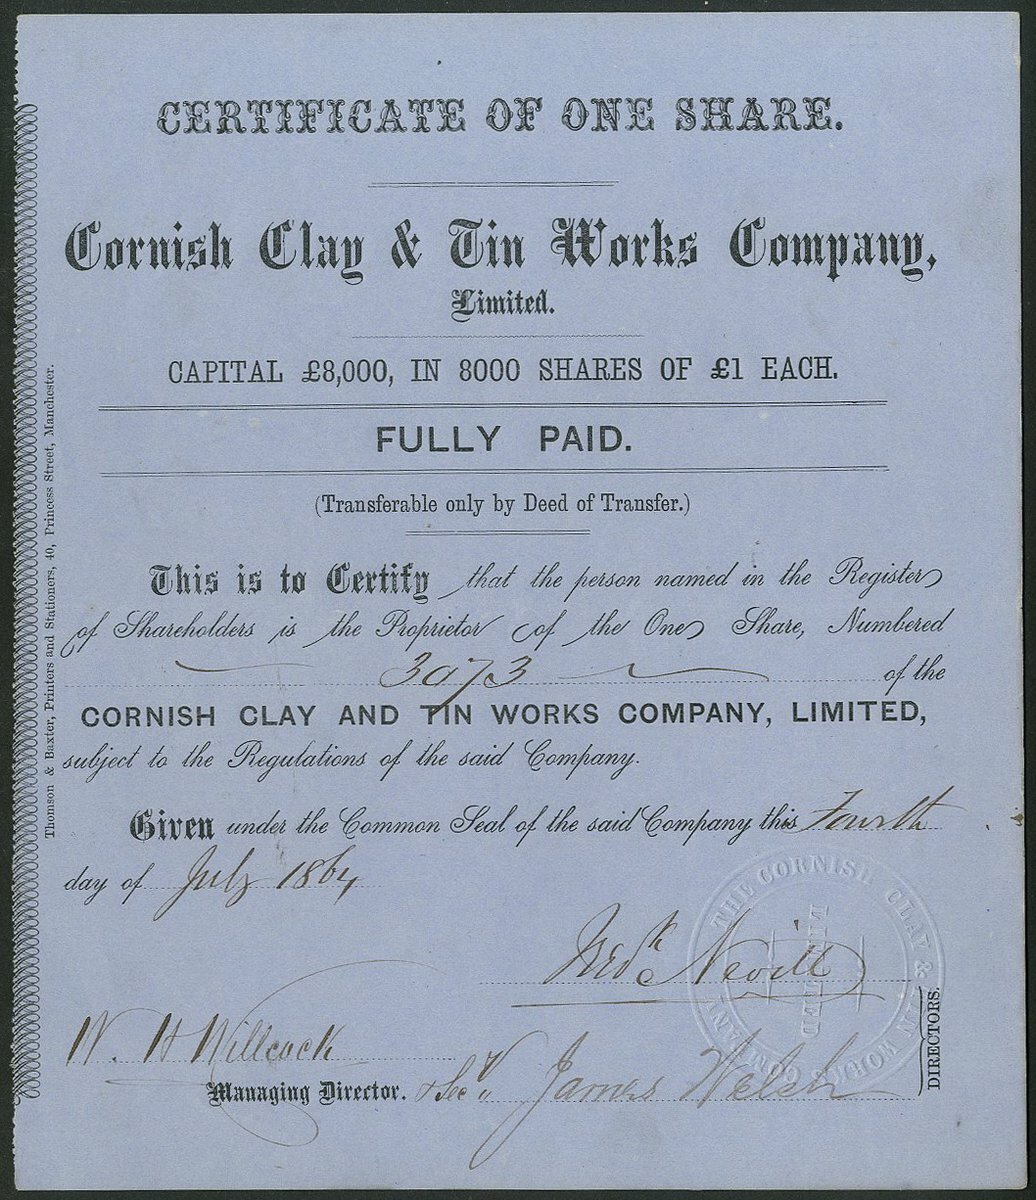 CERTIFICATE OF ONE SHARE.
Cornish Clay & Tin Works Company,
Limited.
CAPITAL £8,000, IN 8000 SHARES OF £1 EACH.
FULLY PAID.
(Transferable only by Deed of Transfer.)
This is to Certify that the person named in the Register
of Shareholders is the Proprietor of the One Share, Numbered
3073 of the
CORNISH CLAY AND TIN WORKS COMPANY, LIMITED,
subject to the Regulations of the said Company.
Given under the Common Seal of the said Company this Fourth
day of July 1864
Fredk Nevill
W. H Willcock
Managing Director. & Secy
James Welsh
DIRECTORS.
THE CORNISH CLAY & TIN WORKS COMPANY
LIMITED
Thomson & Baxter, Printers and Stationers, 40, Princess Street, Manchester.